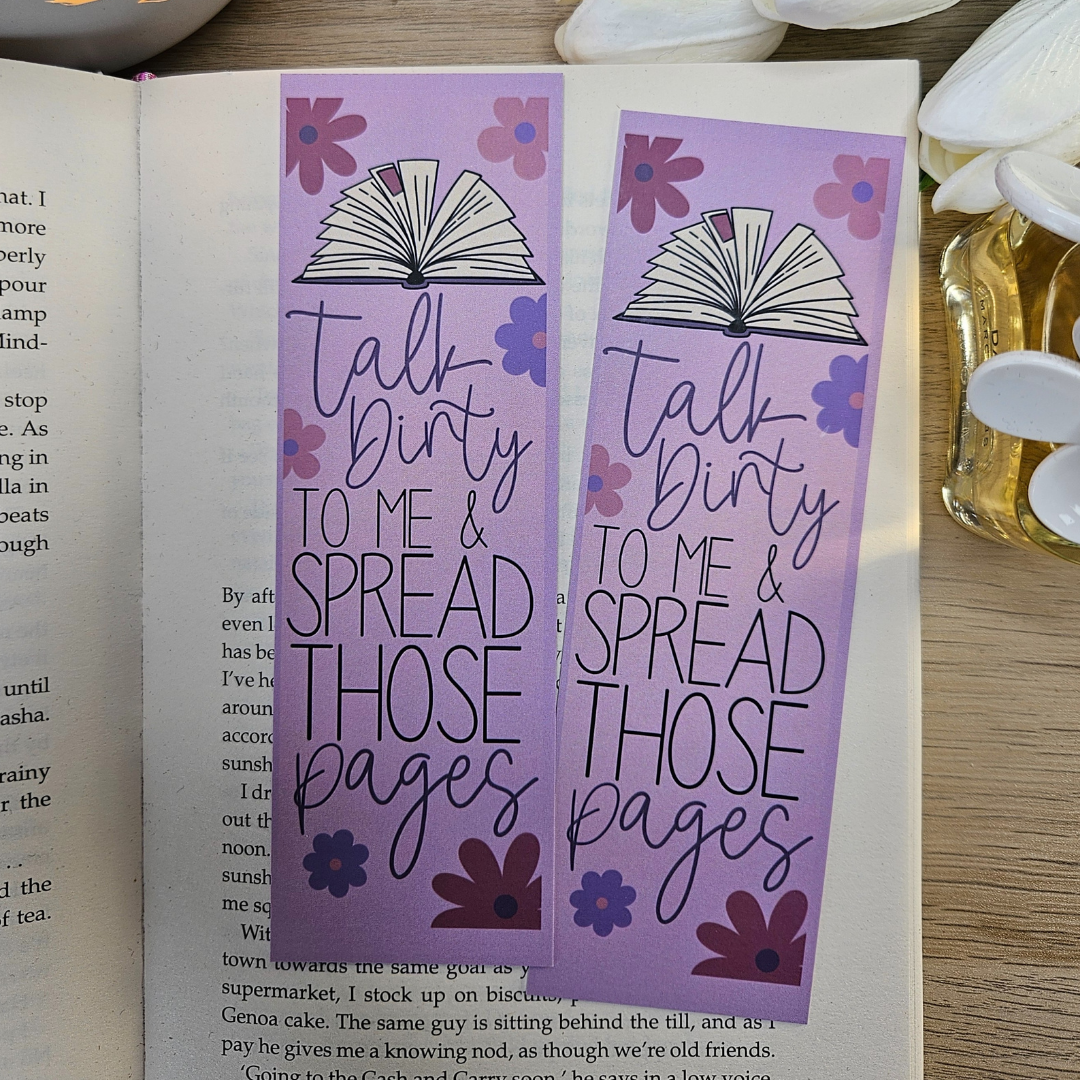 hat. I
more
perly
pour
lamp
Mind-
stop
e. As
ng in
lla in
beats
ough
until
asha.
rainy
r the
. .
d the
of tea.
talk
Dirty
TO ME &
SPREAD
THOSE
pages
talk
Dirty
TO ME &
SPREAD
THOSE
pages
By aft
even l
has be
I've he
aroun
accord
sunsh
I dr
out th
noon.
sunsh
me sq
Wit
town towards the same goal as y
supermarket, I stock up on biscuits, p
Genoa cake. The same guy is sitting behind the till, and as I
pay he gives me a knowing nod, as though we're old friends.
'Going to the Cash and Carry soon,' he says in a low voice